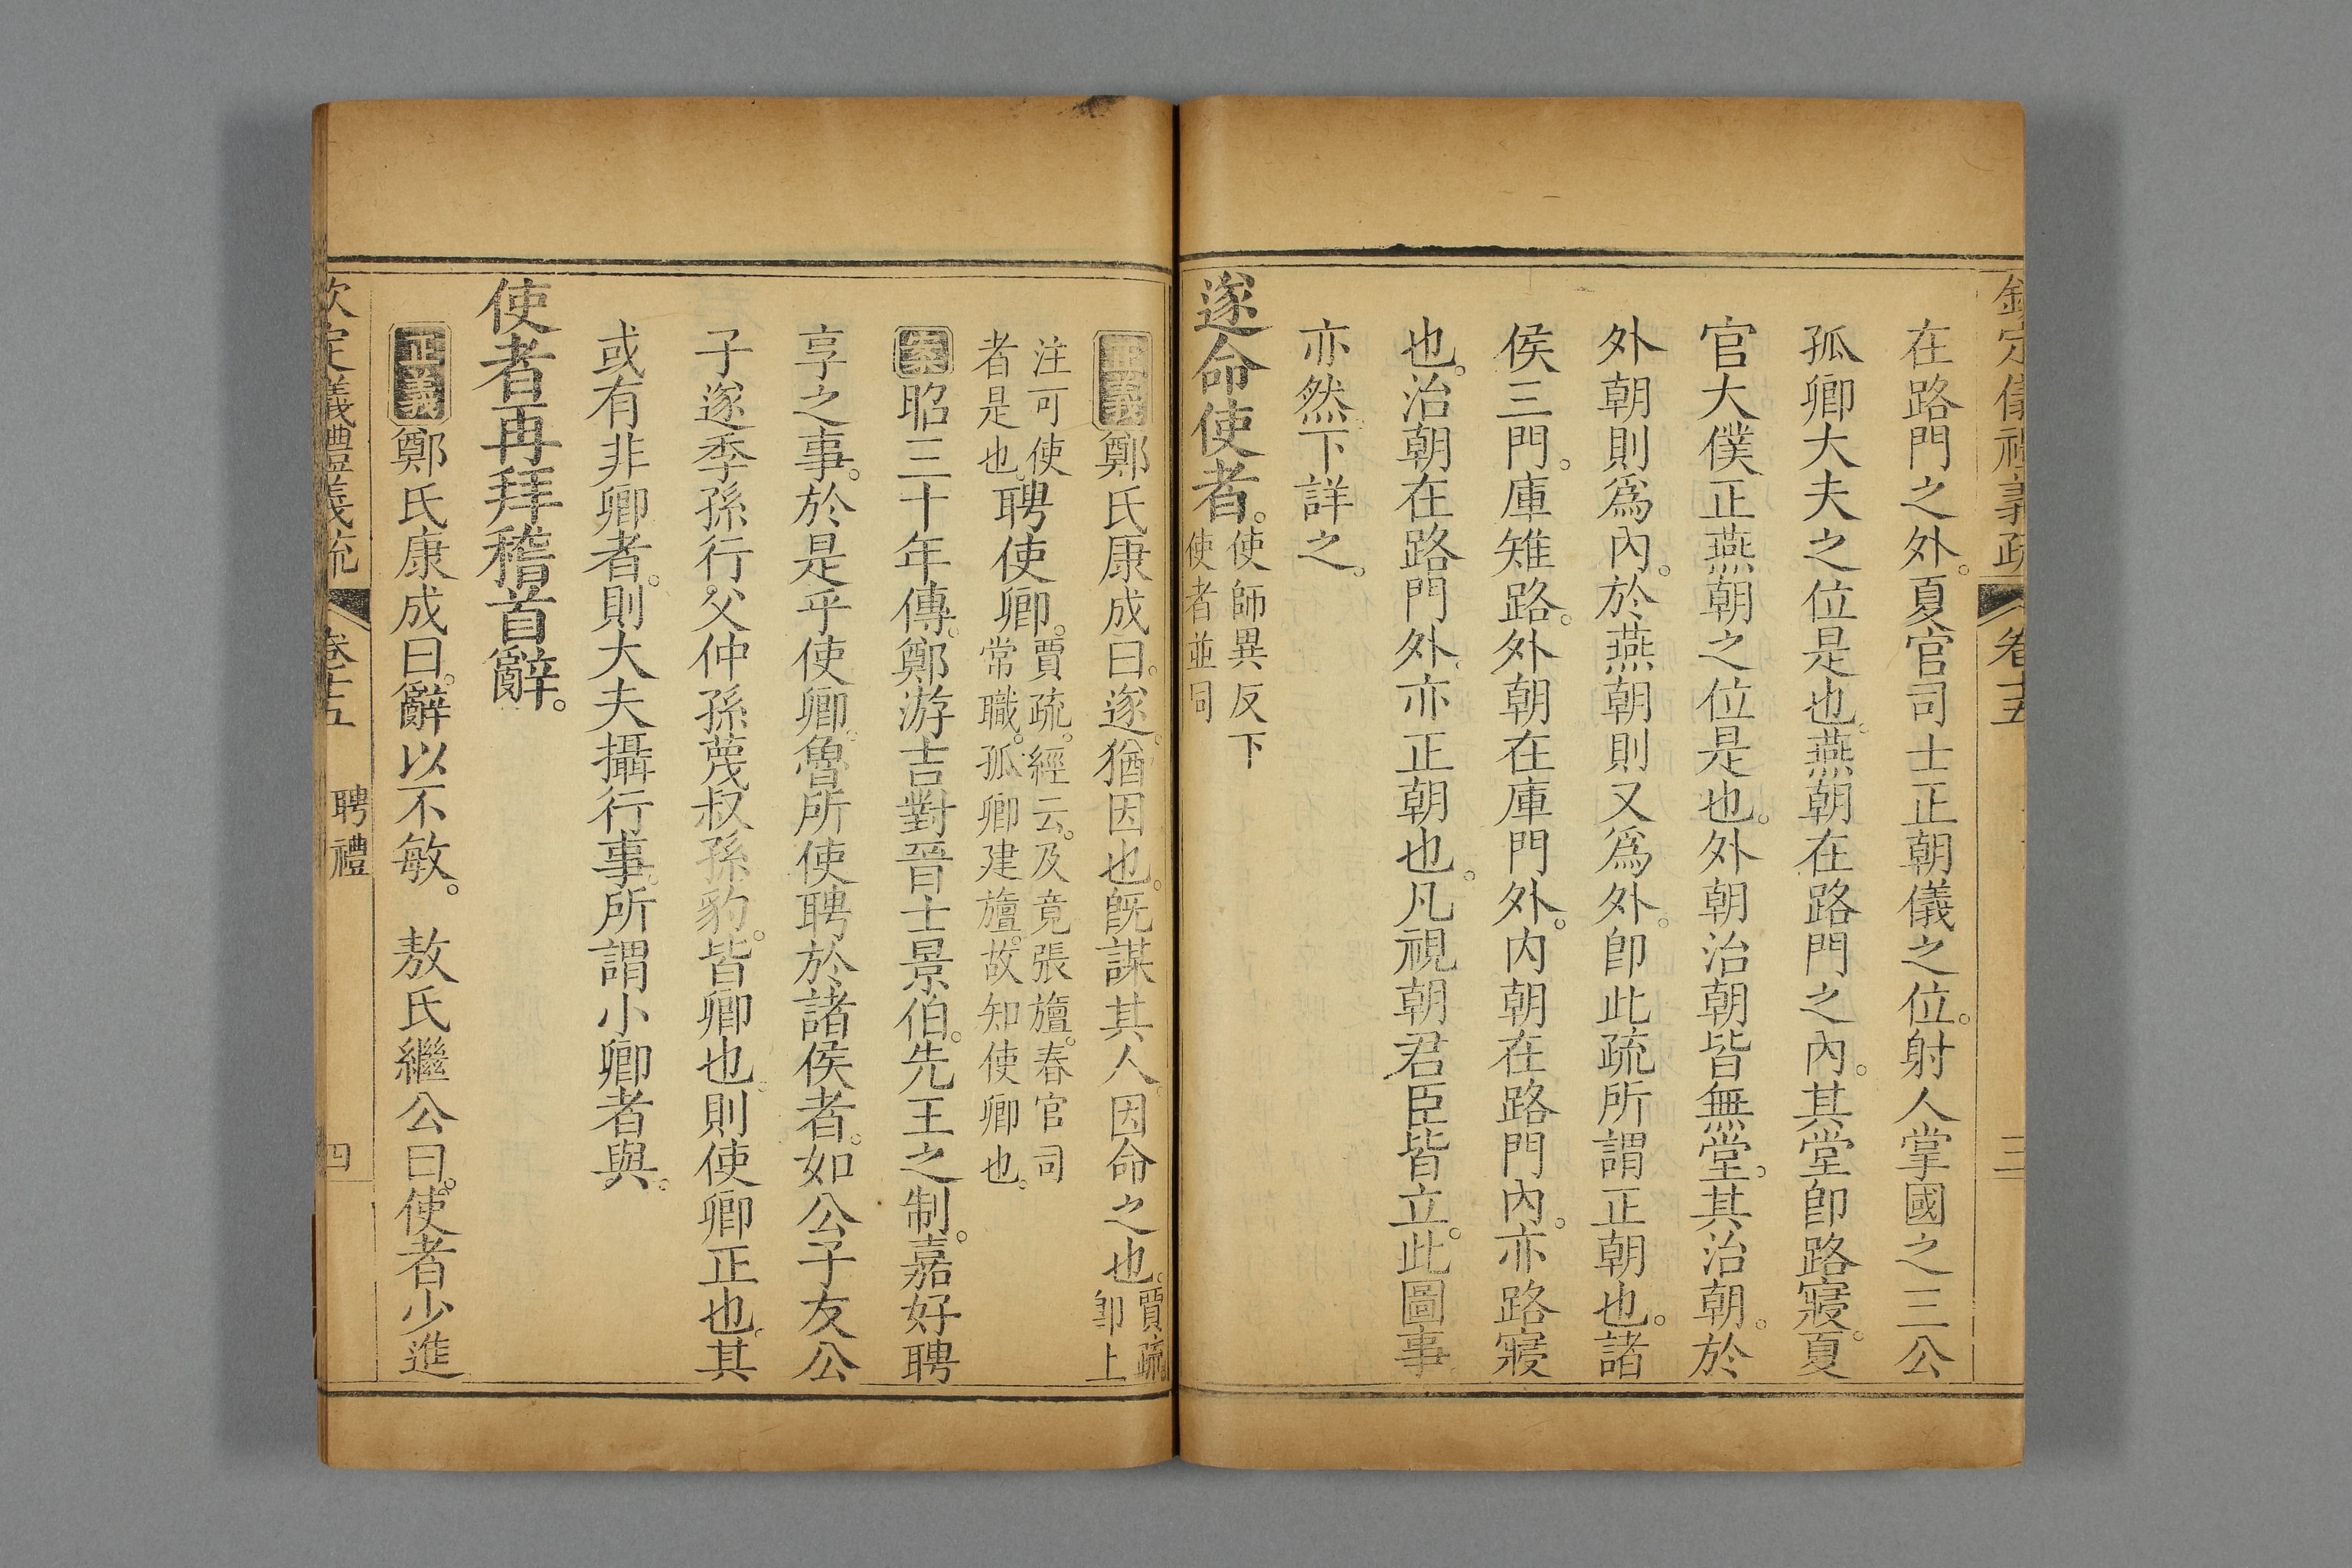 欽定儀禮義疏 卷十五 三
在路門之外。夏官司士正朝儀之位。射人掌國之三公
孤卿大夫之位是也。燕朝在路門之內。其堂卽路寢。夏
官大僕正燕朝之位是也。外朝治朝皆無堂。其治朝。於
外朝則爲內。於燕朝則又爲外。卽此疏所謂正朝也。諸
侯三門。庫雉路。外朝在庫門外。內朝在路門內。亦路寢
也。治朝在路門外。亦正朝也。凡視朝君臣皆立。此圖事
亦然下詳之。
遂命使者。使師異反下
使者並同
正義鄭氏康成曰。遂。猶因也。旣謀其人。因命之也。賈疏
卽上
注可使
者是也。聘使卿。賈疏。經云。及竟張旜。春官司
常職。孤卿建旜。故知使卿也。
案昭三十年傳。鄭游吉對晉士景伯。先王之制。嘉好聘
享之事。於是乎使卿。魯所使聘於諸侯者。如公子友公
子遂季孫行父仲孫蔑叔孫豹。皆卿也。則使卿正也。其
或有非卿者。則大夫攝行事。所謂小卿者與。
使者再拜稽首辭。
正義鄭氏康成曰。辭以不敏。 敖氏繼公曰。使者少進
欽定儀禮義疏 卷十五 聘禮 四